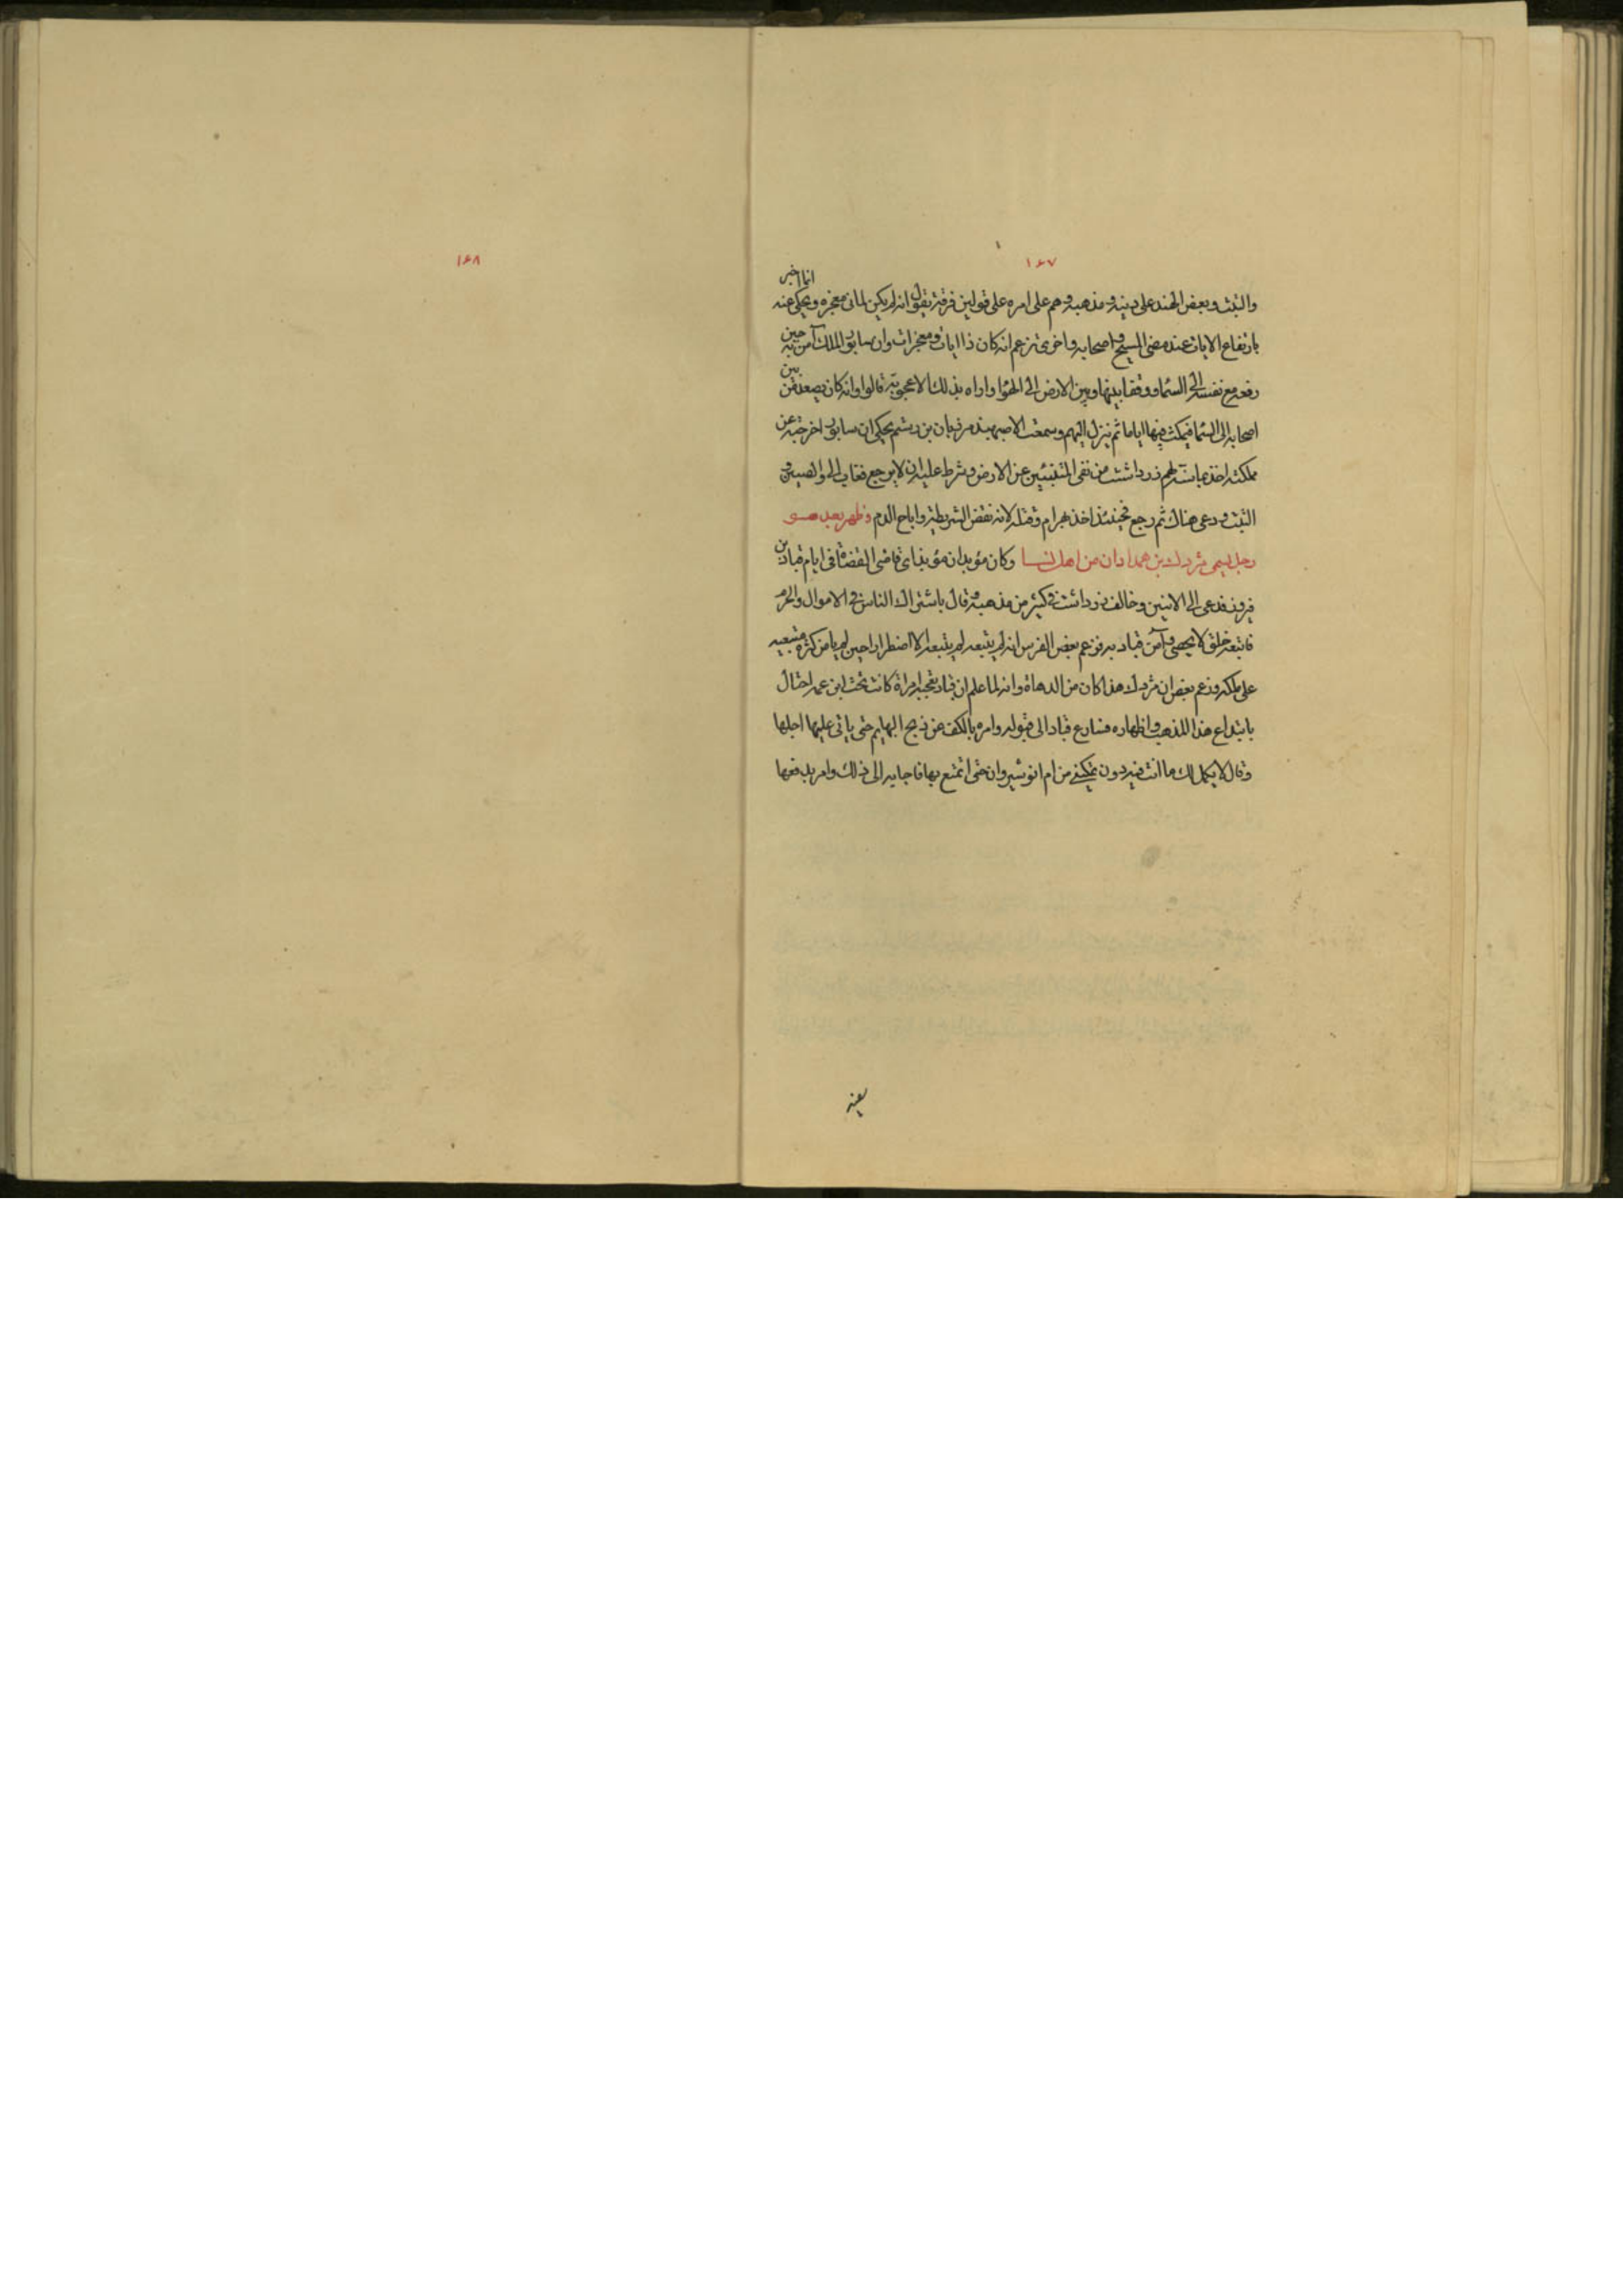 ١٦٧
انما اخبر
والتبت وبعض الهند على دينه ومذهبه وهم على امره على قولين فرقة تقول انه لم يكن لمانى معجزه ويحكى عنه
بارتفاع الايات عند مضى المسيح واصحابه واخرى تزعم انه كان ذا ايات ومعجزات وان سابور الملك آمن به حين
رفعه مع نفسه الى السماء ووقفا بينها وبين الارض فى الهوا واراه بذلك الاعجوبة قالوا وانه كان يصعد من بين
اصحابه الى السما فيمكث فيها اياما ثم ينزل اليهم وسمعت الاصبهبد مرزبان بن رستم يحكى ان سابور اخرجه عن
مملكته اخذ بما سنه لهم زرداشت من نفى المتنبئين عن الارض وشرط عليه ان لا يرجع فغاب الى الهند والصين و
التبت ودعى هناك ثم رجع فحينئذ اخذ بهرام وقتله لانه نقض الشريطة واباح الدم وظهر بعد هو
رجل يسمى مزدك بن همدادان من اهل نسا وكان موبدان موبذ اى قاضى القضاة فى ايام قباد بن
فيروز فدعى الى الاثنين وخالف زرداشت فى كثير من مذهبه وقال باشتراك الناس فى الاموال والحرم
فاتبعه خلق لا يحصى وآمن قباد به فزعم بعض الفرس انه لم يتبعه لم يتبعه الا اضطرارا حين لم يامن كثرة متبعيه
على ملكه وزعم بعض ان مزدك هذا كان من الدهاة وانه لما علم ان قباد تعجبه امراة كانت تحت ابن عمه احتال
بابتداع هذا المذهب واظهاره فسارع قباد الى قبوله وامره بالكف عن ذبح البهايم حتى ياتى عليها اجلها
وقال لا يكمل لك ما انت فيه دون تمكينى من ام انوشيروان حتى اتمتع بها فاجابه الى ذلك وامر بدفعها
١٦٨